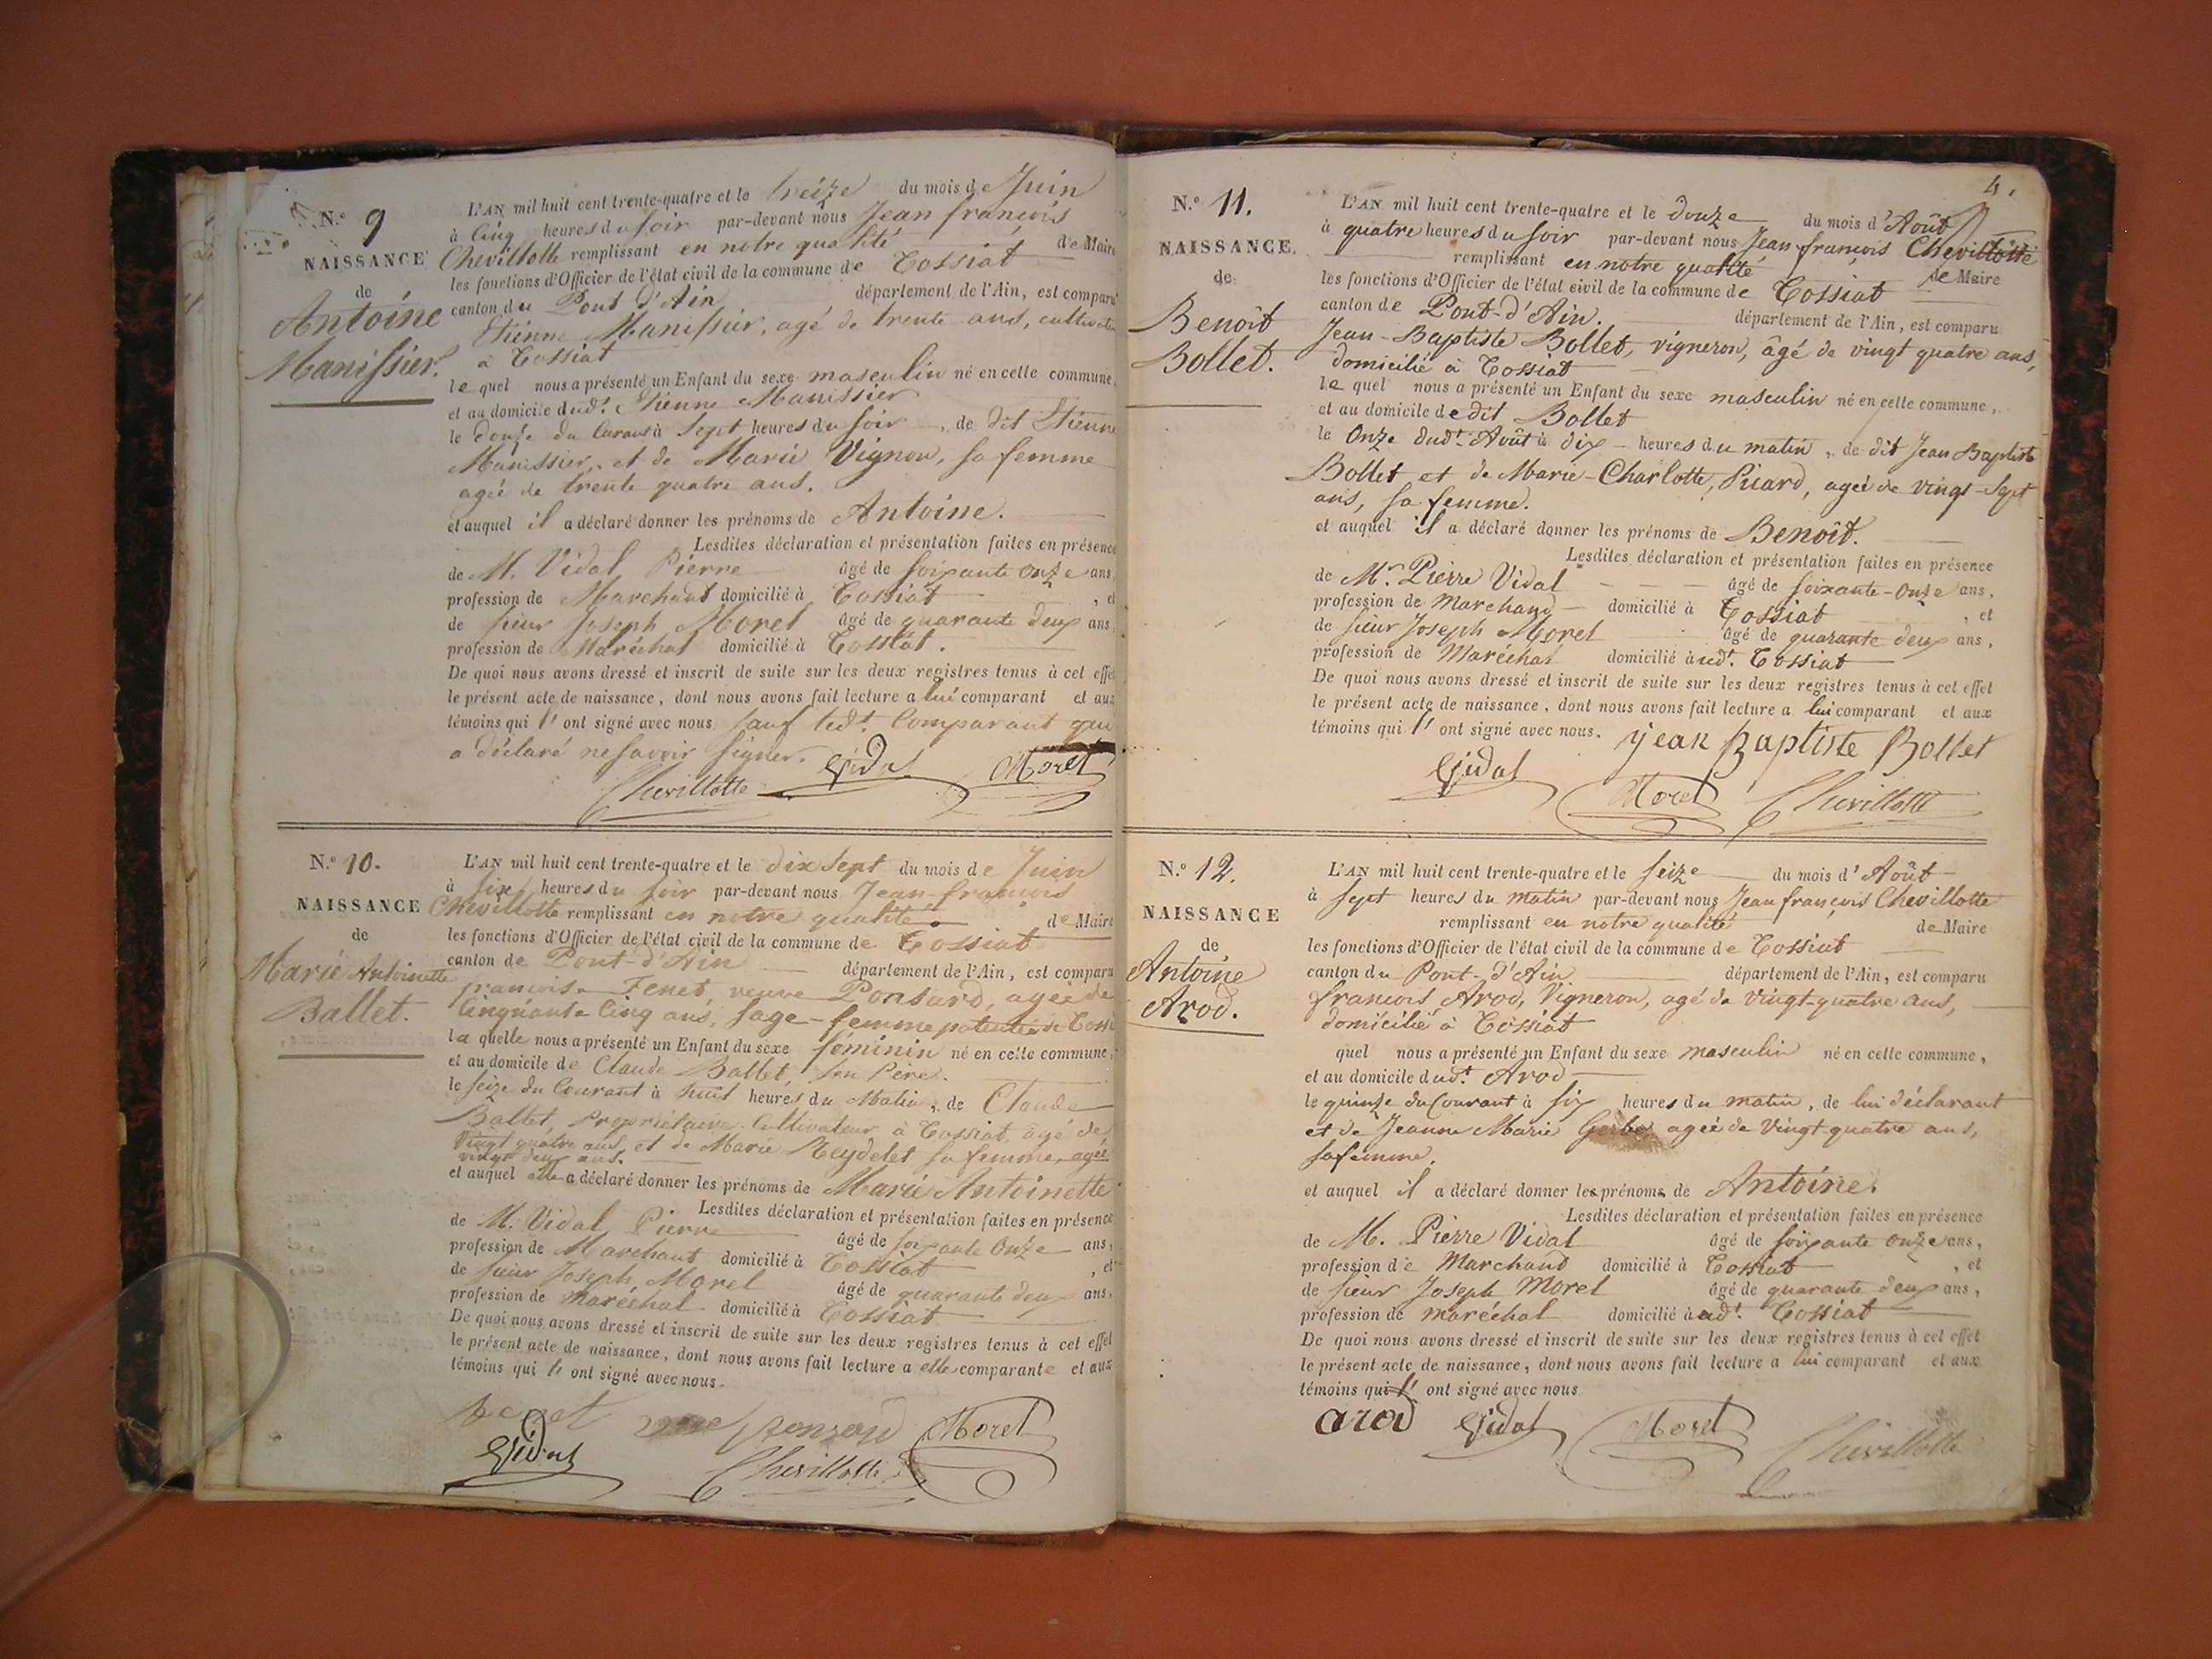 N.° 9
NAISSANCE
de
Antoine
Manissier.
L'AN mil huit cent trente-quatre et le treize du mois de Juin
à Cinq heures du soir par-devant nous Jean françois
Chevillotte remplissant en notre qualité de Maire
les fonctions d'Officier de l'état civil de la commune de Tossiat
canton du Pont d'Ain département de l'Ain, est comparu
Etienne Manissier, agé de trente ans, cultivateur
à Tossiat
le quel nous a présenté un Enfant du sexe masculin né en cette commune,
et au domicile dudt. Etienne Manissier
le douze du Courant à Sept heures du soir, de dit Etienne
Manissier, et de Marie Vignon, sa femme
agée de trente quatre ans.
et auquel il a déclaré donner les prénoms de Antoine.
Lesdites déclaration et présentation faites en présence
de M. Vidal Pierre âgé de soixante onze ans,
profession de Marchand domicilié à Tossiat, et
de sieur Joseph Morel âgé de quarante deux ans,
profession de Maréchal domicilié à Tossiat.
De quoi nous avons dressé et inscrit de suite sur les deux registres tenus à cet effet
le présent acte de naissance, dont nous avons fait lecture a lui comparant et aux
témoins qui l' ont signé avec nous, sauf ledt. Comparant qui
a déclaré ne savoir signer.
Vidal Morel
Chevillotte
N.° 10.
NAISSANCE
de
Marie Antoinette
Ballet.
L'AN mil huit cent trente-quatre et le dix Sept du mois de Juin
à six heures du soir par-devant nous Jean-françois
Chevillotte remplissant en notre qualité de Maire
les fonctions d'Officier de l'état civil de la commune de Tossiat
canton de Pont-d'Ain département de l'Ain, est comparu
françoise Fenet, veuve Ponsard, agée de
Cinquante Cinq ans, sage-femme patentée à Tossi
la quelle nous a présenté un Enfant du sexe féminin né en cette commune,
et au domicile de Claude Ballet, son Père.
le seize du Courant à huit heures du Matin, de Claude
Ballet, Propriétaire Cultivateur à Tossiat, âgé de
Vingt quatre ans, et de Marie Reydelet sa femme, agée
vingt deux ans.
et auquel elle a déclaré donner les prénoms de Marie Antoinette
Lesdites déclaration et présentation faites en présence
de M. Vidal Pierre âgé de soixante Onze ans,
profession de Marchant domicilié à Tossiat, et
de sieur Joseph Morel âgé de quarante deux ans,
profession de maréchal domicilié à Tossiat
De quoi nous avons dressé et inscrit de suite sur les deux registres tenus à cet effet
le présent acte de naissance, dont nous avons fait lecture a elle comparante et aux
témoins qui l' ont signé avec nous.
Morel
Vidal Chevillotte
4.
N.° 11.
NAISSANCE.
de
Benoît
Bollet.
L'AN mil huit cent trente-quatre et le douze du mois d'Août
à quatre heures du soir par-devant nous Jean-françois Chevillotte
remplissant en notre qualité de Maire
les fonctions d'Officier de l'état civil de la commune de Tossiat
canton de Pont-d'Ain. département de l'Ain, est comparu
Jean-Baptiste Bollet, vigneron, âgé de vingt quatre ans,
domicilié à Tossiat
le quel nous a présenté un Enfant du sexe masculin né en cette commune,
et au domicile de dit Bollet
le Onze dudt. Août à dix heures du matin, de dit Jean Baptiste
Bollet et de Marie-Charlotte, Picard, agée de vingt-Sept
ans, sa femme.
et auquel il a déclaré donner les prénoms de Benoît.
Lesdites déclaration et présentation faites en présence
de Mr. Pierre Vidal âgé de soixante-Onze ans,
profession de Marchand domicilié à Tossiat, et
de sieur Joseph Morel âgé de quarante deux ans,
profession de Maréchal domicilié à udt. Tossiat
De quoi nous avons dressé et inscrit de suite sur les deux registres tenus à cet effet
le présent acte de naissance, dont nous avons fait lecture a lui comparant et aux
témoins qui l' ont signé avec nous. jean Baptiste Bollet
Vidal Morel Chevillotte
N.° 12.
NAISSANCE
de
Antoine
Arod.
L'AN mil huit cent trente-quatre et le seize du mois d'Août
à sept heures du matin par-devant nous Jean françois Chevillotte
remplissant en notre qualité de Maire
les fonctions d'Officier de l'état civil de la commune de Tossiat
canton du Pont-d'Ain département de l'Ain, est comparu
françois Arod, Vigneron, agé de vingt-quatre ans,
domicilié à Tossiat
quel nous a présenté un Enfant du sexe masculin né en cette commune,
et au domicile dudt. Arod
le quinze du Courant à six heures du matin, de lui déclarant
et de Jeanne Marie agée de Vingt quatre ans,
sa femme.
et auquel il a déclaré donner les prénoms de Antoine.
Lesdites déclaration et présentation faites en présence
de M. Pierre Vidal âgé de soixante onze ans,
profession de Marchand domicilié à Tossiat, et
de sieur Joseph Morel âgé de quarante deux ans,
profession de maréchal domicilié à udt. Tossiat
De quoi nous avons dressé et inscrit de suite sur les deux registres tenus à cet effet
le présent acte de naissance, dont nous avons fait lecture a lui comparant et aux
témoins qui l' ont signé avec nous
arod Vidal Morel
Chevillotte